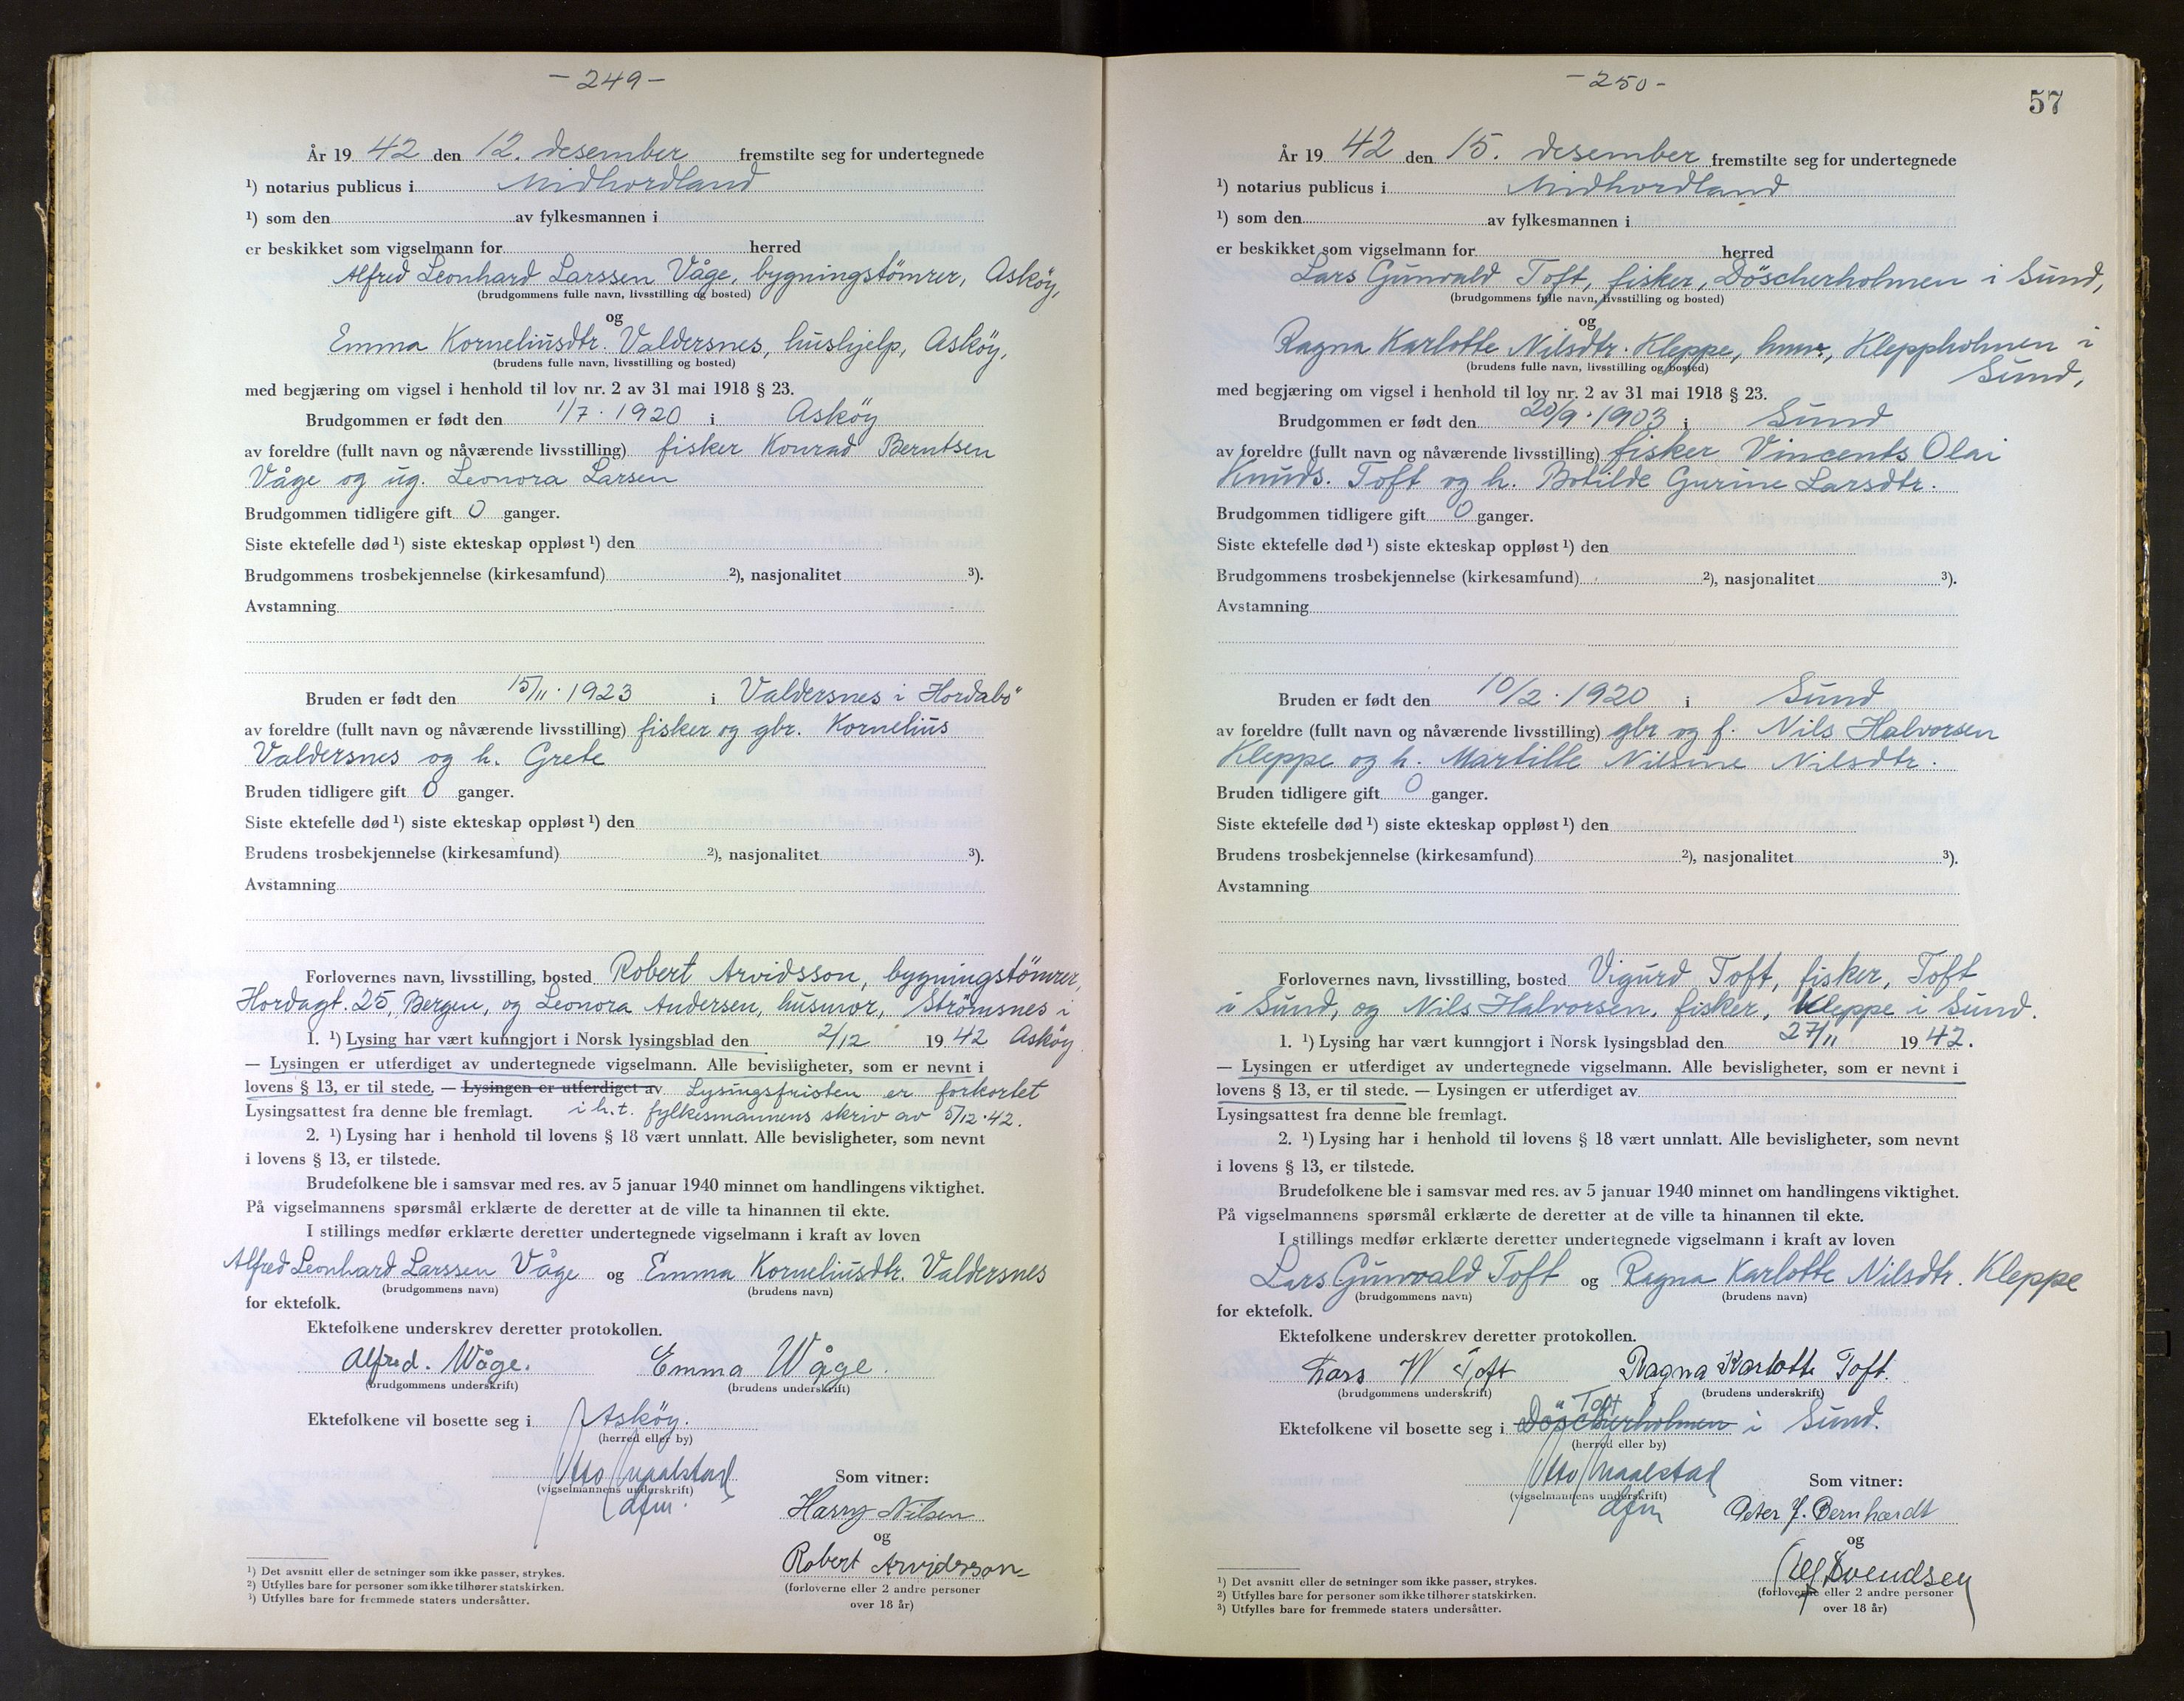 - 249 -
År 19 42 den 12. desember fremstilte seg for undertegnede
¹) notarius publicus i Midhordland
¹) som den av fylkesmannen i
er beskikket som vigselmann for herred
Alfred Leonhard Larssen Våge, bygningstömrer, Asköy,
(brudgommens fulle navn, livsstilling og bosted)
og
Emma Korneliusdtr. Valdersnes, hushjelp, Asköy,
(brudens fulle navn, livsstilling og bosted)
med begjæring om vigsel i henhold til lov nr. 2 av 31 mai 1918 § 23.
Brudgommen er født den 1/7. 1920 i Asköy
av foreldre (fullt navn og nåværende livsstilling) fisker Konrad Berntsen
Våge og ug. Leonora Larsen
Brudgommen tidligere gift 0 ganger.
Siste ektefelle død ¹) siste ekteskap oppløst ¹) den
Brudgommens trosbekjennelse (kirkesamfund) ²), nasjonalitet ³).
Avstamning
Bruden er født den 15/11. 1923 i Valdersnes i Hordabö
av foreldre (fullt navn og nåværende livsstilling) fisker og gbr. Kornelius
Valdersnes og h. Grete
Bruden tidligere gift 0 ganger.
Siste ektefelle død ¹) siste ekteskap oppløst ¹) den
Brudens trosbekjennelse (kirkesamfund) ²), nasjonalitet ³).
Avstamning
Forlovernes navn, livsstilling, bosted Robert Arvidsson, bygningstömrer,
Hordagt. 25, Bergen, og Leonora Andersen, husmor, Strömsnes i
1. ¹) Lysing har vært kunngjort i Norsk lysingsblad den 2/12 19 42 Asköy
— Lysingen er utferdiget av undertegnede vigselmann. Alle bevisligheter, som er nevnt i
lovens § 13, er til stede. — Lysingen er utferdiget av Lysingsfristen er forkortet
Lysingsattest fra denne ble fremlagt. i h.t. fylkesmannens skriv av 5/12.42.
2. ¹) Lysing har i henhold til lovens § 18 vært unnlatt. Alle bevisligheter, som nevnt
i lovens § 13, er tilstede.
Brudefolkene ble i samsvar med res. av 5 januar 1940 minnet om handlingens viktighet.
På vigselmannens spørsmål erklærte de deretter at de ville ta hinannen til ekte.
I stillings medfør erklærte deretter undertegnede vigselmann i kraft av loven
Alfred Leonhard Larssen Våge og Emma Korneliusdtr. Valdersnes
(brudgommens navn) (brudens navn)
for ektefolk.
Ektefolkene underskrev deretter protokollen.
Alfred. Wåge. Emma Wåge.
(brudgommens underskrift) (brudens underskrift)
Ektefolkene vil bosette seg i Asköy.
(herred eller by)
Otto Maalstad
(vigselmannens underskrift)
dfm.
Som vitner:
Harry Nilsen
og
Robert Arvidsson
(forloverne eller 2 andre personer
over 18 år)
¹) Det avsnitt eller de setninger som ikke passer, strykes.
²) Utfylles bare for personer som ikke tilhører statskirken.
³) Utfylles bare for fremmede staters undersåtter.
- 250 -
57
År 19 42 den 15. desember fremstilte seg for undertegnede
¹) notarius publicus i Midhordland
¹) som den av fylkesmannen i
er beskikket som vigselmann for herred
Lars Gunvald Toft, fisker, Döscherholmen i Sund,
(brudgommens fulle navn, livsstilling og bosted)
og
Ragna Karlotte Nilsdtr. Kleppe, Kleppholmen i
Sund,
(brudens fulle navn, livsstilling og bosted)
med begjæring om vigsel i henhold til lov nr. 2 av 31 mai 1918 § 23.
Brudgommen er født den 20/9. 1903 i Sund
av foreldre (fullt navn og nåværende livsstilling) fisker Vincents Olai
Knuds. Toft og h. Botilde Gurine Larsdtr.
Brudgommen tidligere gift 0 ganger.
Siste ektefelle død ¹) siste ekteskap oppløst ¹) den
Brudgommens trosbekjennelse (kirkesamfund) ²), nasjonalitet ³).
Avstamning
Bruden er født den 10/2. 1920 i Sund
av foreldre (fullt navn og nåværende livsstilling) gbr og f. Nils Halvorsen
Kleppe og h. Martille Nilsine Nilsdtr.
Bruden tidligere gift 0 ganger.
Siste ektefelle død ¹) siste ekteskap oppløst ¹) den
Brudens trosbekjennelse (kirkesamfund) ²), nasjonalitet ³).
Avstamning
Forlovernes navn, livsstilling, bosted Vigurd Toft, fisker, Toft
i Sund, og Nils Halvorsen, fisker, Kleppe i Sund.
1. ¹) Lysing har vært kunngjort i Norsk lysingsblad den 27/11 19 42.
— Lysingen er utferdiget av undertegnede vigselmann. Alle bevisligheter, som er nevnt i
lovens § 13, er til stede. — Lysingen er utferdiget av
Lysingsattest fra denne ble fremlagt.
2. ¹) Lysing har i henhold til lovens § 18 vært unnlatt. Alle bevisligheter, som nevnt
i lovens § 13, er tilstede.
Brudefolkene ble i samsvar med res. av 5 januar 1940 minnet om handlingens viktighet.
På vigselmannens spørsmål erklærte de deretter at de ville ta hinannen til ekte.
I stillings medfør erklærte deretter undertegnede vigselmann i kraft av loven
Lars Gunvald Toft og Ragna Karlotte Nilsdtr. Kleppe
(brudgommens navn) (brudens navn)
for ektefolk.
Ektefolkene underskrev deretter protokollen.
Lars W Toft Ragna Karlotte Toft.
(brudgommens underskrift) (brudens underskrift)
Toft
Ektefolkene vil bosette seg i Döscherholmen i Sund.
(herred eller by)
Otto Maalstad
(vigselmannens underskrift)
dfm
Som vitner:
Peter J. Bernhardt
og
Svendsen
(forloverne eller 2 andre personer
over 18 år)
¹) Det avsnitt eller de setninger som ikke passer, strykes.
²) Utfylles bare for personer som ikke tilhører statskirken.
³) Utfylles bare for fremmede staters undersåtter.